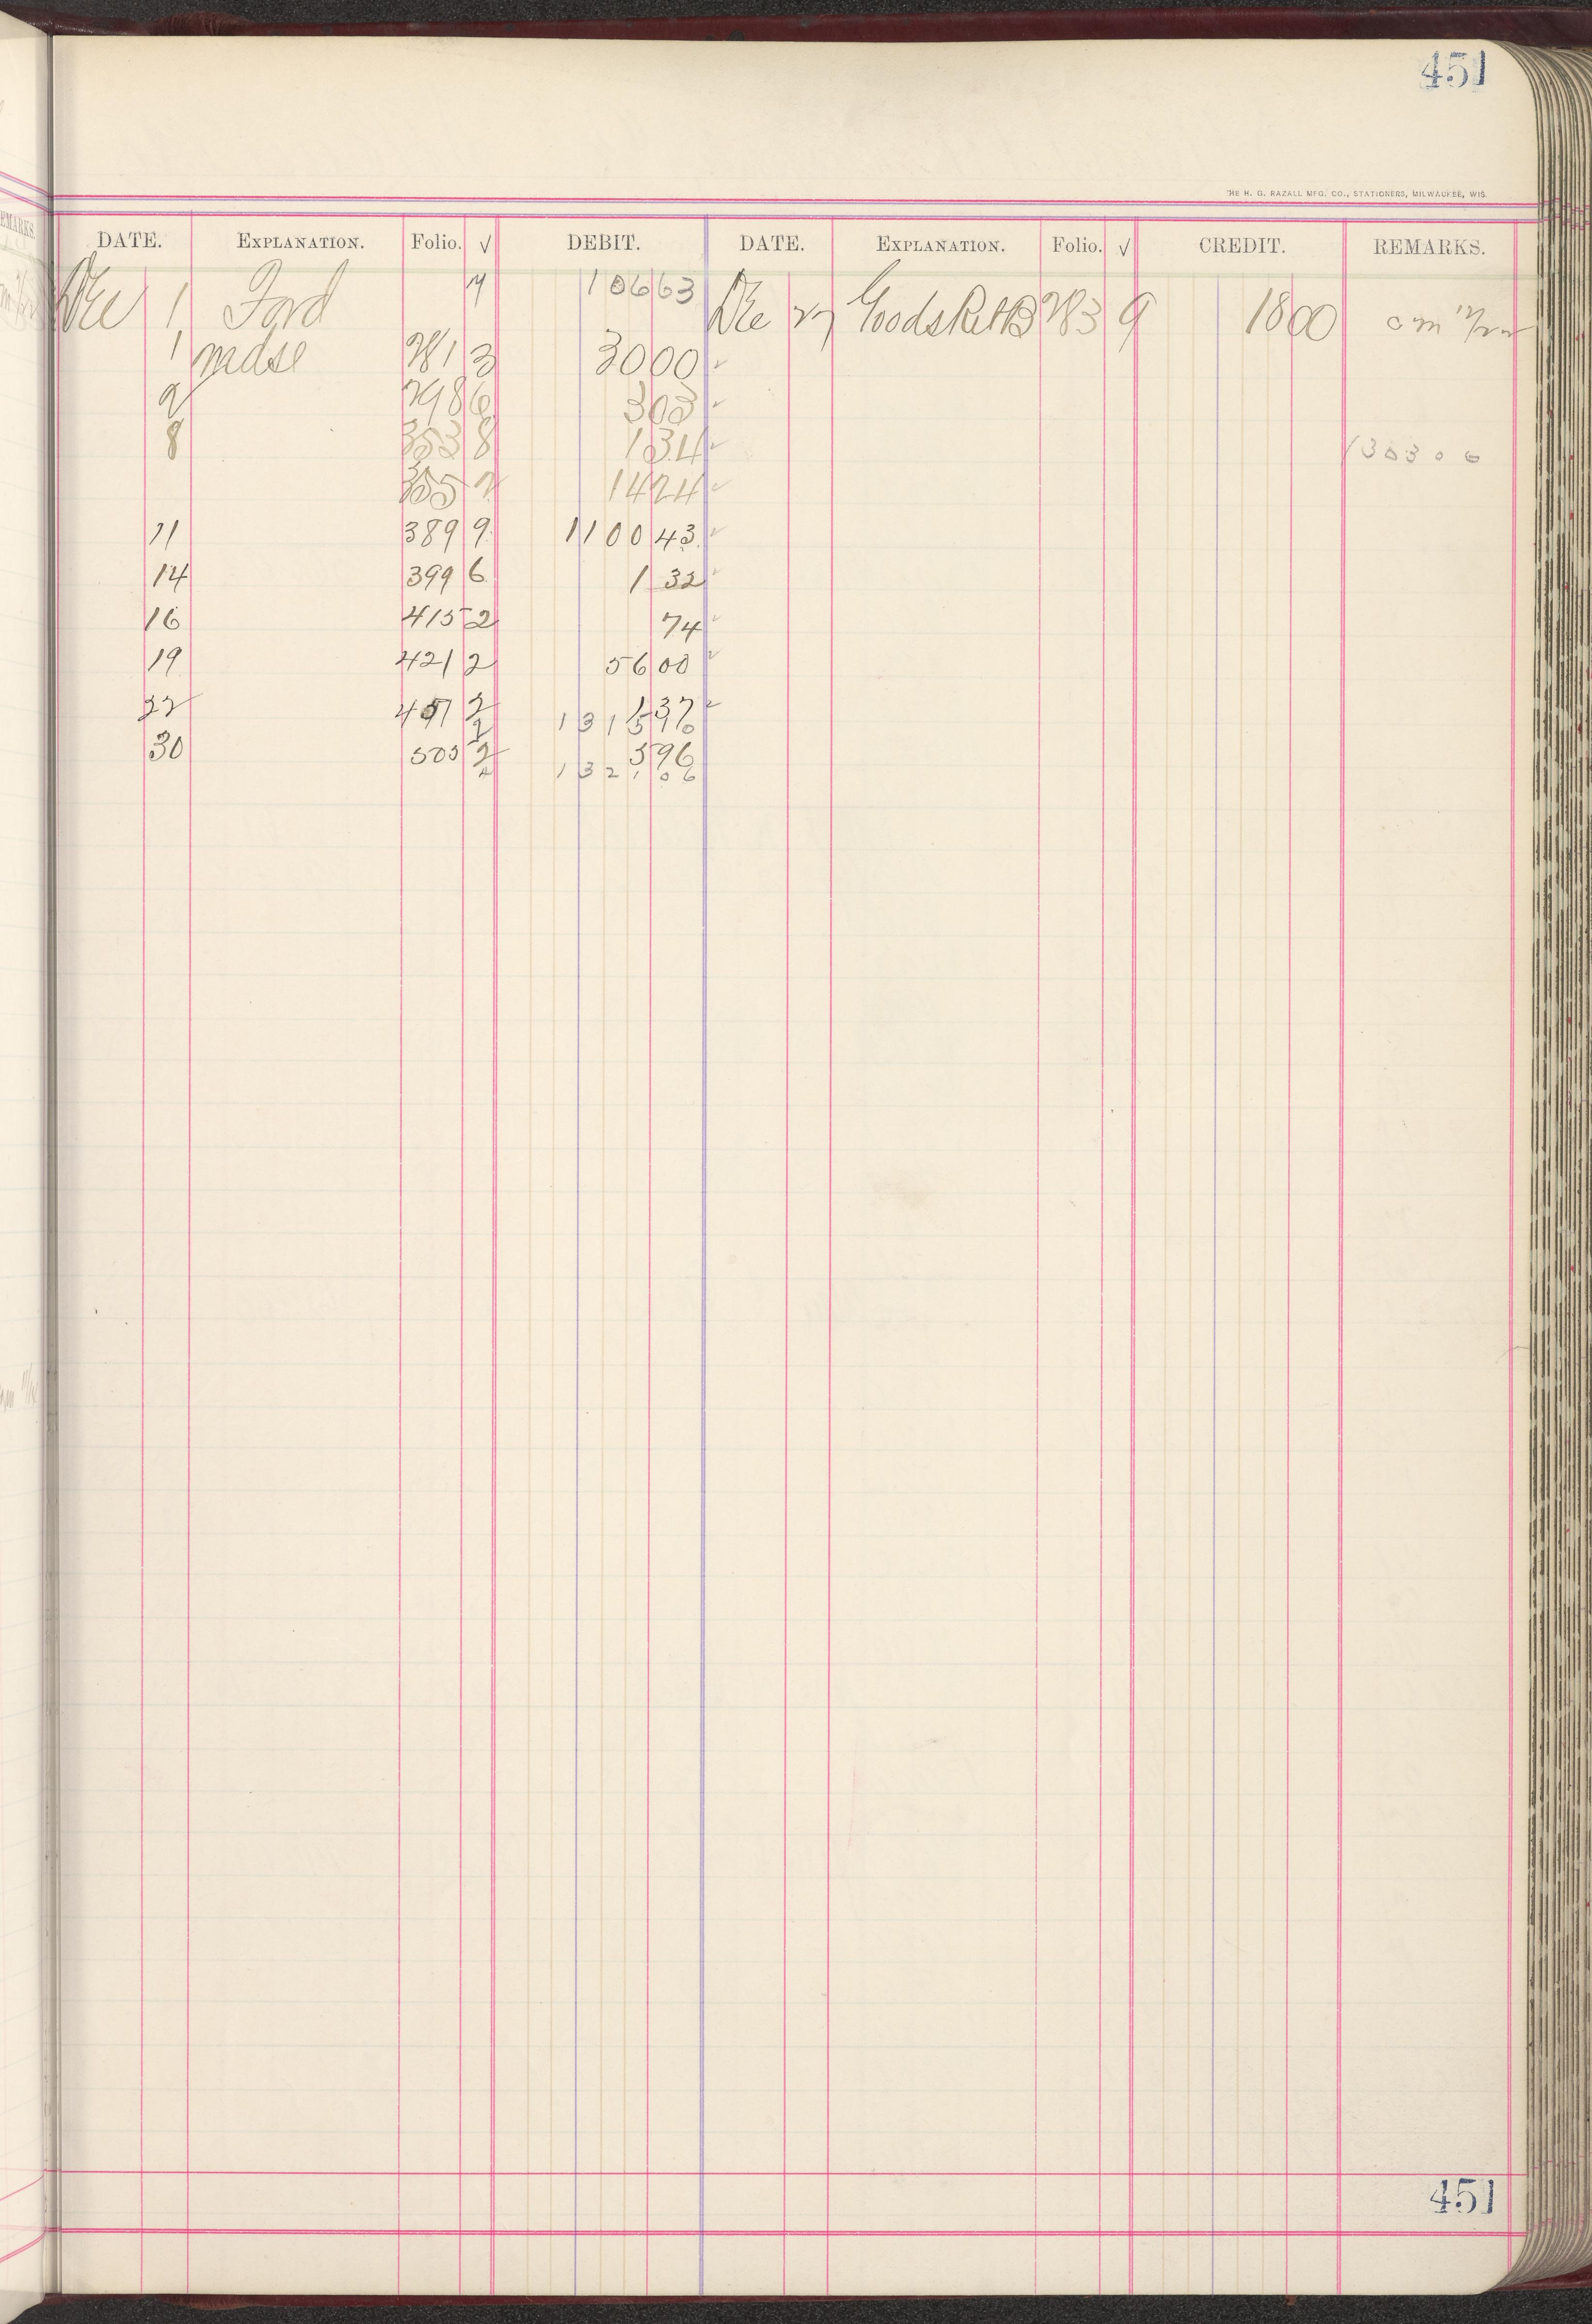 451
THE H. G. RAZALL MFG. CO., STATIONERS, MILWAUKEE, WIS.
EMARKS.
DATE. EXPLANATION. Folio. √ DEBIT. DATE. EXPLANATION. Folio. √ CREDIT. REMARKS.
Dec 1 Ford 7 106 63 Dec 27 Goods Ret B 283 9 18 00 cm 12/22
1 mdse 281 3 30 00 ✓
2 298 6 3 03 ✓
8 353 8 1 34 ✓ 1303 06
355 2 14 24 ✓
11 389 9 1100 43 ✓
14 399 6 1 32 ✓
16 415 2 74 ✓
19 421 2 56 00 ✓
22 457 2 1 37 ✓
2 1315 10
30 503 2 5 96
1321 06
451